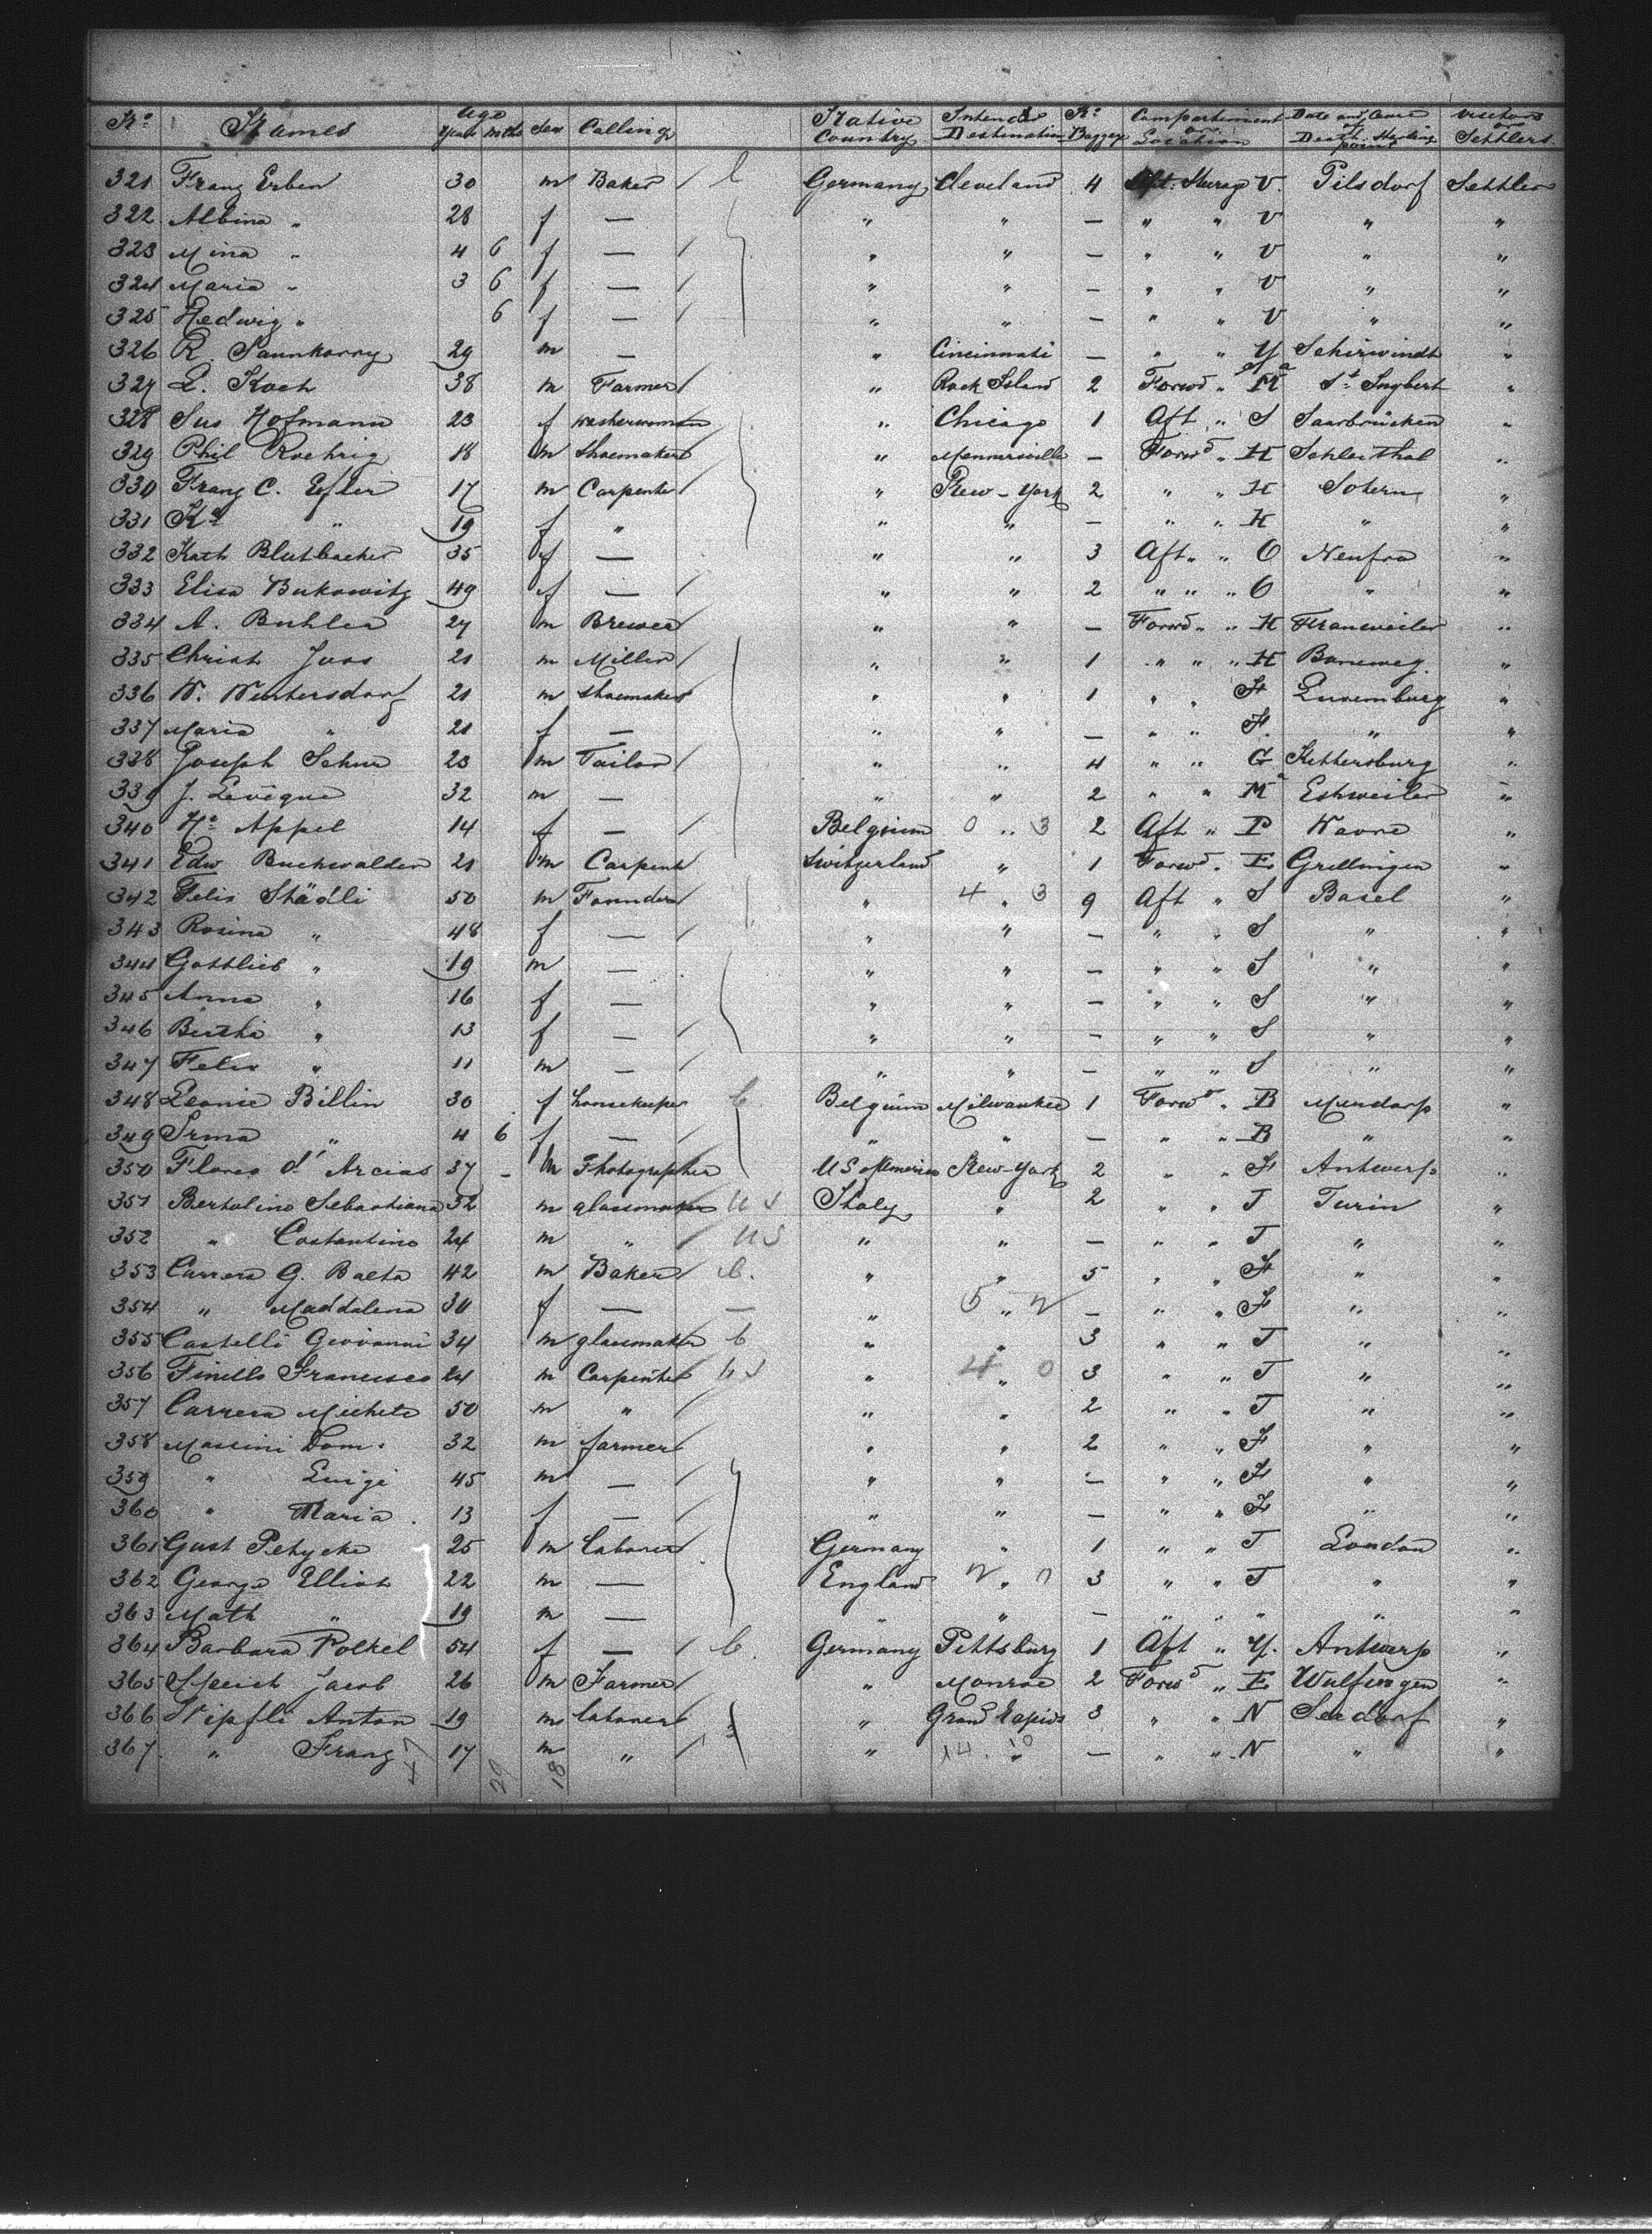 No Names Age Years Mths Sex Calling Native Country Intended Destination No Baggage Compartiment or Location Date and Cause of Death Starting point Visitors or Settlers
321 Franz Erben 30 m Baker / Germany Cleveland 4 Aft. Steerage V. Pilsdorf Settler
322 Albina " 28 f — " " — " " V " "
323 Mina " 4 6 f — / " " — " " V " "
324 Maria " 3 6 f — / " " — " " V " "
325 Hedwig " 6 f — / " " — " " V " "
326 R. 29 m — " Cincinnati — " " Y Schirwindt "
327 L. Koch 38 m Farmer / " Rock Island 2 Forwd " Ma St Ingbert "
328 Sus Hofmann 23 f washerwoman " Chicago 1 Aft " S Saarbrücken "
329 Phil Roehrig 18 m Shoemaker " — Forwd " H Schleithal "
330 Franz C. 17 m Carpenter / " New-York 2 " " H Sohern "
331 " 19 f " " " — " " H " "
332 Kath Blutbacher 35 f — " " 3 Aft " " O Neufra "
333 Elisa Bukowitz 49 f — / " " 2 " " " O " "
334 A. Buhler 27 m Brewer / " " — Forwd " " H "
335 Christ Joos 21 m Miller / " " 1 " " " H "
336 W. Wintersdorf 21 m Shoemaker " " 1 " " F Luxemburg "
337 Maria " 21 f — " " — " " F. " "
338 Joseph Schur 23 m Tailor / " " 4 " " G "
339 J. Levêque 32 m — " " 2 " " Ma Eshweiler "
340 Appel 14 f — / Belgium 0 " 3 2 Aft " P Wavre "
341 Edw Buchwalder 21 m Carpent Switzerland " 1 Forwd " E Grellingen "
342 Felix Städli 50 m Founder / " 4 " 3 9 Aft " S Basel "
343 Rosina " 48 f — / " " — " " S " "
344 Gottlieb " 19 m — " " — " " S " "
345 Anna " 16 f — / " " — " " S " "
346 Bertha " 13 f — / " " — " " S " "
347 Felix " 11 m — / " " — " " S " "
348 Leonie Billin 30 f housekeeper Belgium Milwaukee 1 Forwd " B "
349 Irma " 4 6 f — / " " — " " B " "
350 Flores d'Arcias 37 - m Photographer US of America New-York 2 " " F Antwerp "
351 Bertolino Sebastiano 32 m glassmaker US Italy " 2 " " T Turin "
352 " Costantino 24 m " / US " " — " " T " "
353 Carrera G. Balta 42 m Baker / " " 5 " " F " "
354 " Maddalena 30 f — — " 5 " 2 — " " F " "
355 Castelli Giovanni 34 m glassmaker " " 3 " " T " "
356 Finello Francesco 24 m Carpenter US " 4 " 0 3 " " T " "
357 Carrera Michele 50 m " / " " 2 " " T " "
358 Massini Dom. 32 m farmer " " 2 " " F " "
359 " Luigi 45 m — / " " — " " F " "
360 " Maria 13 f — / " " — " " F " "
361 Gust Petycke 25 m Laborer Germany " 1 " " T London "
362 George Elliot 22 m — England 2 " 0 3 " " T " "
363 Math " 19 m — " " — " " " " "
364 Barbara Polkel 54 f — / Germany Pittsburg 1 Aft " Y. Antwerp "
365 Speich Jacob 26 m Farmer / " Monroe 2 Forwd " E Wulfingen "
366 Wipfli Anton 19 m laborer " Grand Rapids 3 " " N Seedorf "
367. " Franz 17 m " / " 14 " 10 — " " N " "
47 29 18